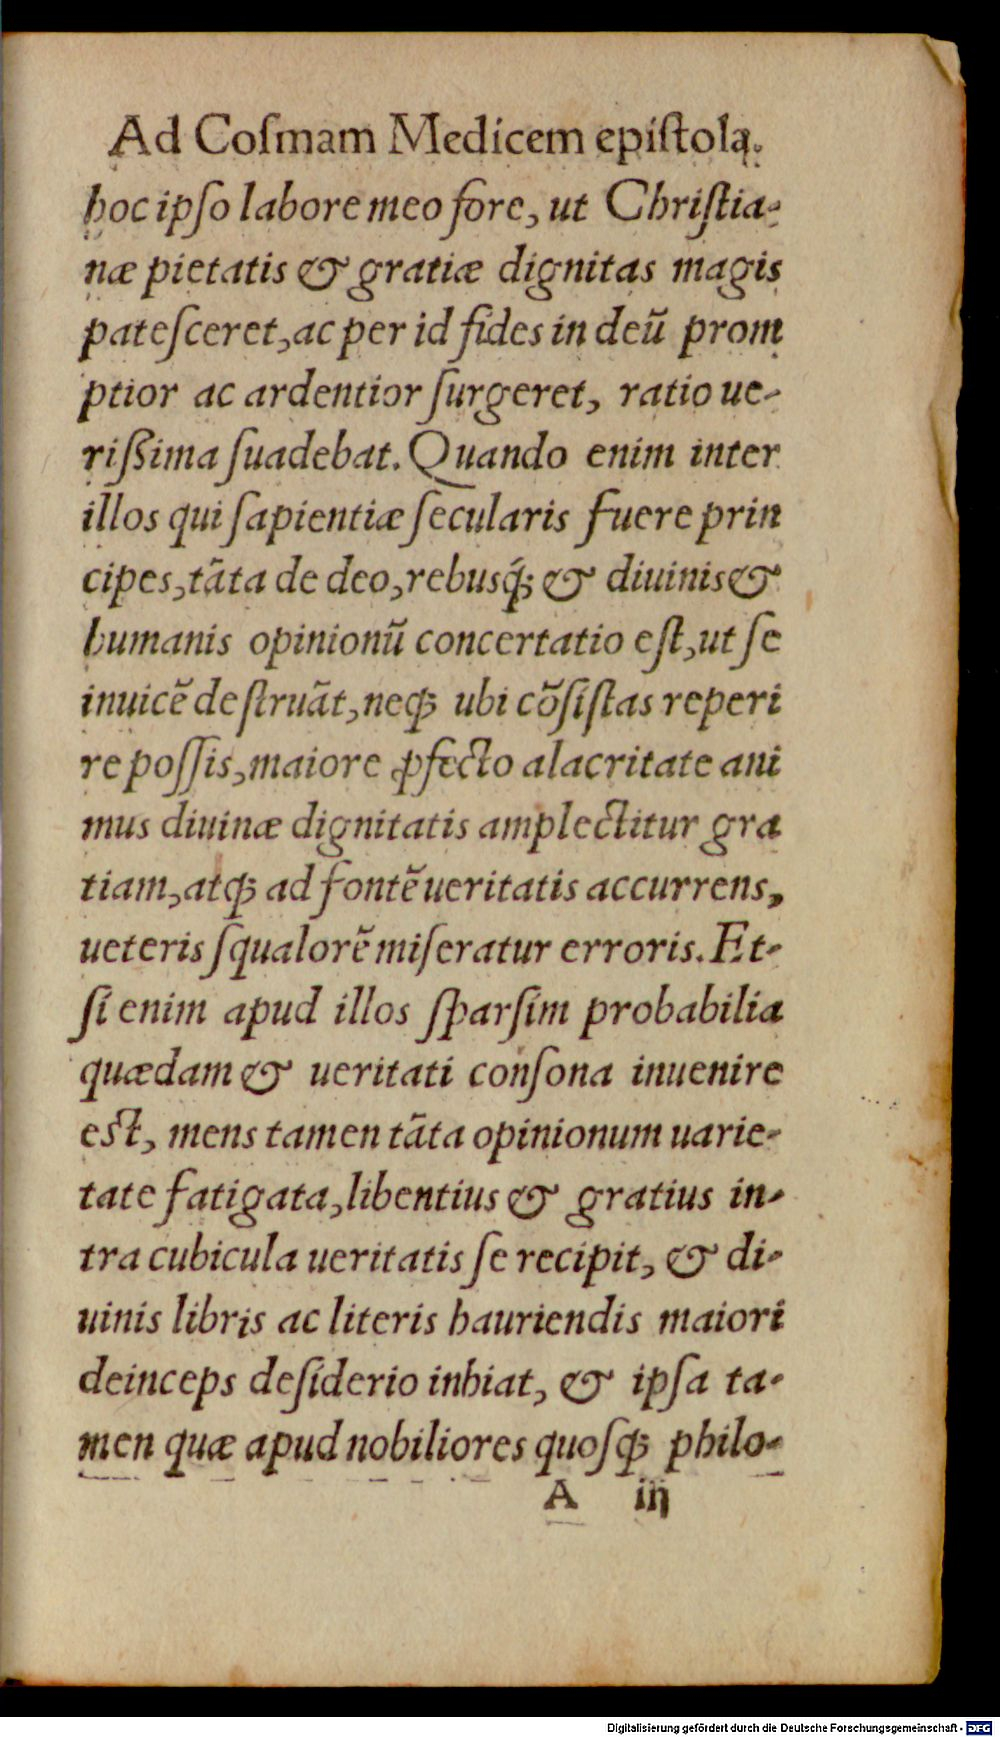 Ad Coſmam Medicem epiſtola.
hoc ipſo labore meo fore, ut Chriſtia-
næ pietatis & gratiæ dignitas magis
pateſceret, ac per id fides in deū prom
ptior ac ardentior ſurgeret, ratio ue-
riſsima ſuadebat. Quando enim inter
illos qui ſapientiæ ſecularis fuere prin
cipes, tāta de deo, rebusq́; & diuinis &
humanis opinionū concertatio eſt, ut ſe
inuicē deſtruāt, neq; ubi cōſiſtas reperi
re poſſis, maiore ꝓfecto alacritate ani
mus diuinæ dignitatis amplectitur gra
tiam, atq; ad fontē ueritatis accurrens,
ueteris ſqualorē miſeratur erroris. Et-
ſi enim apud illos ſparſim probabilia
quædam & ueritati conſona inuenire
eſt, mens tamen tāta opinionum uarie-
tate fatigata, libentius & gratius in-
tra cubicula ueritatis ſe recipit, & di-
uinis libris ac literis hauriendis maiori
deinceps deſiderio inhiat, & ipſa ta-
men quæ apud nobiliores quoſq; philo-
A iij
Digitalisierung gefördert durch die Deutsche Forschungsgemeinschaft - DFG